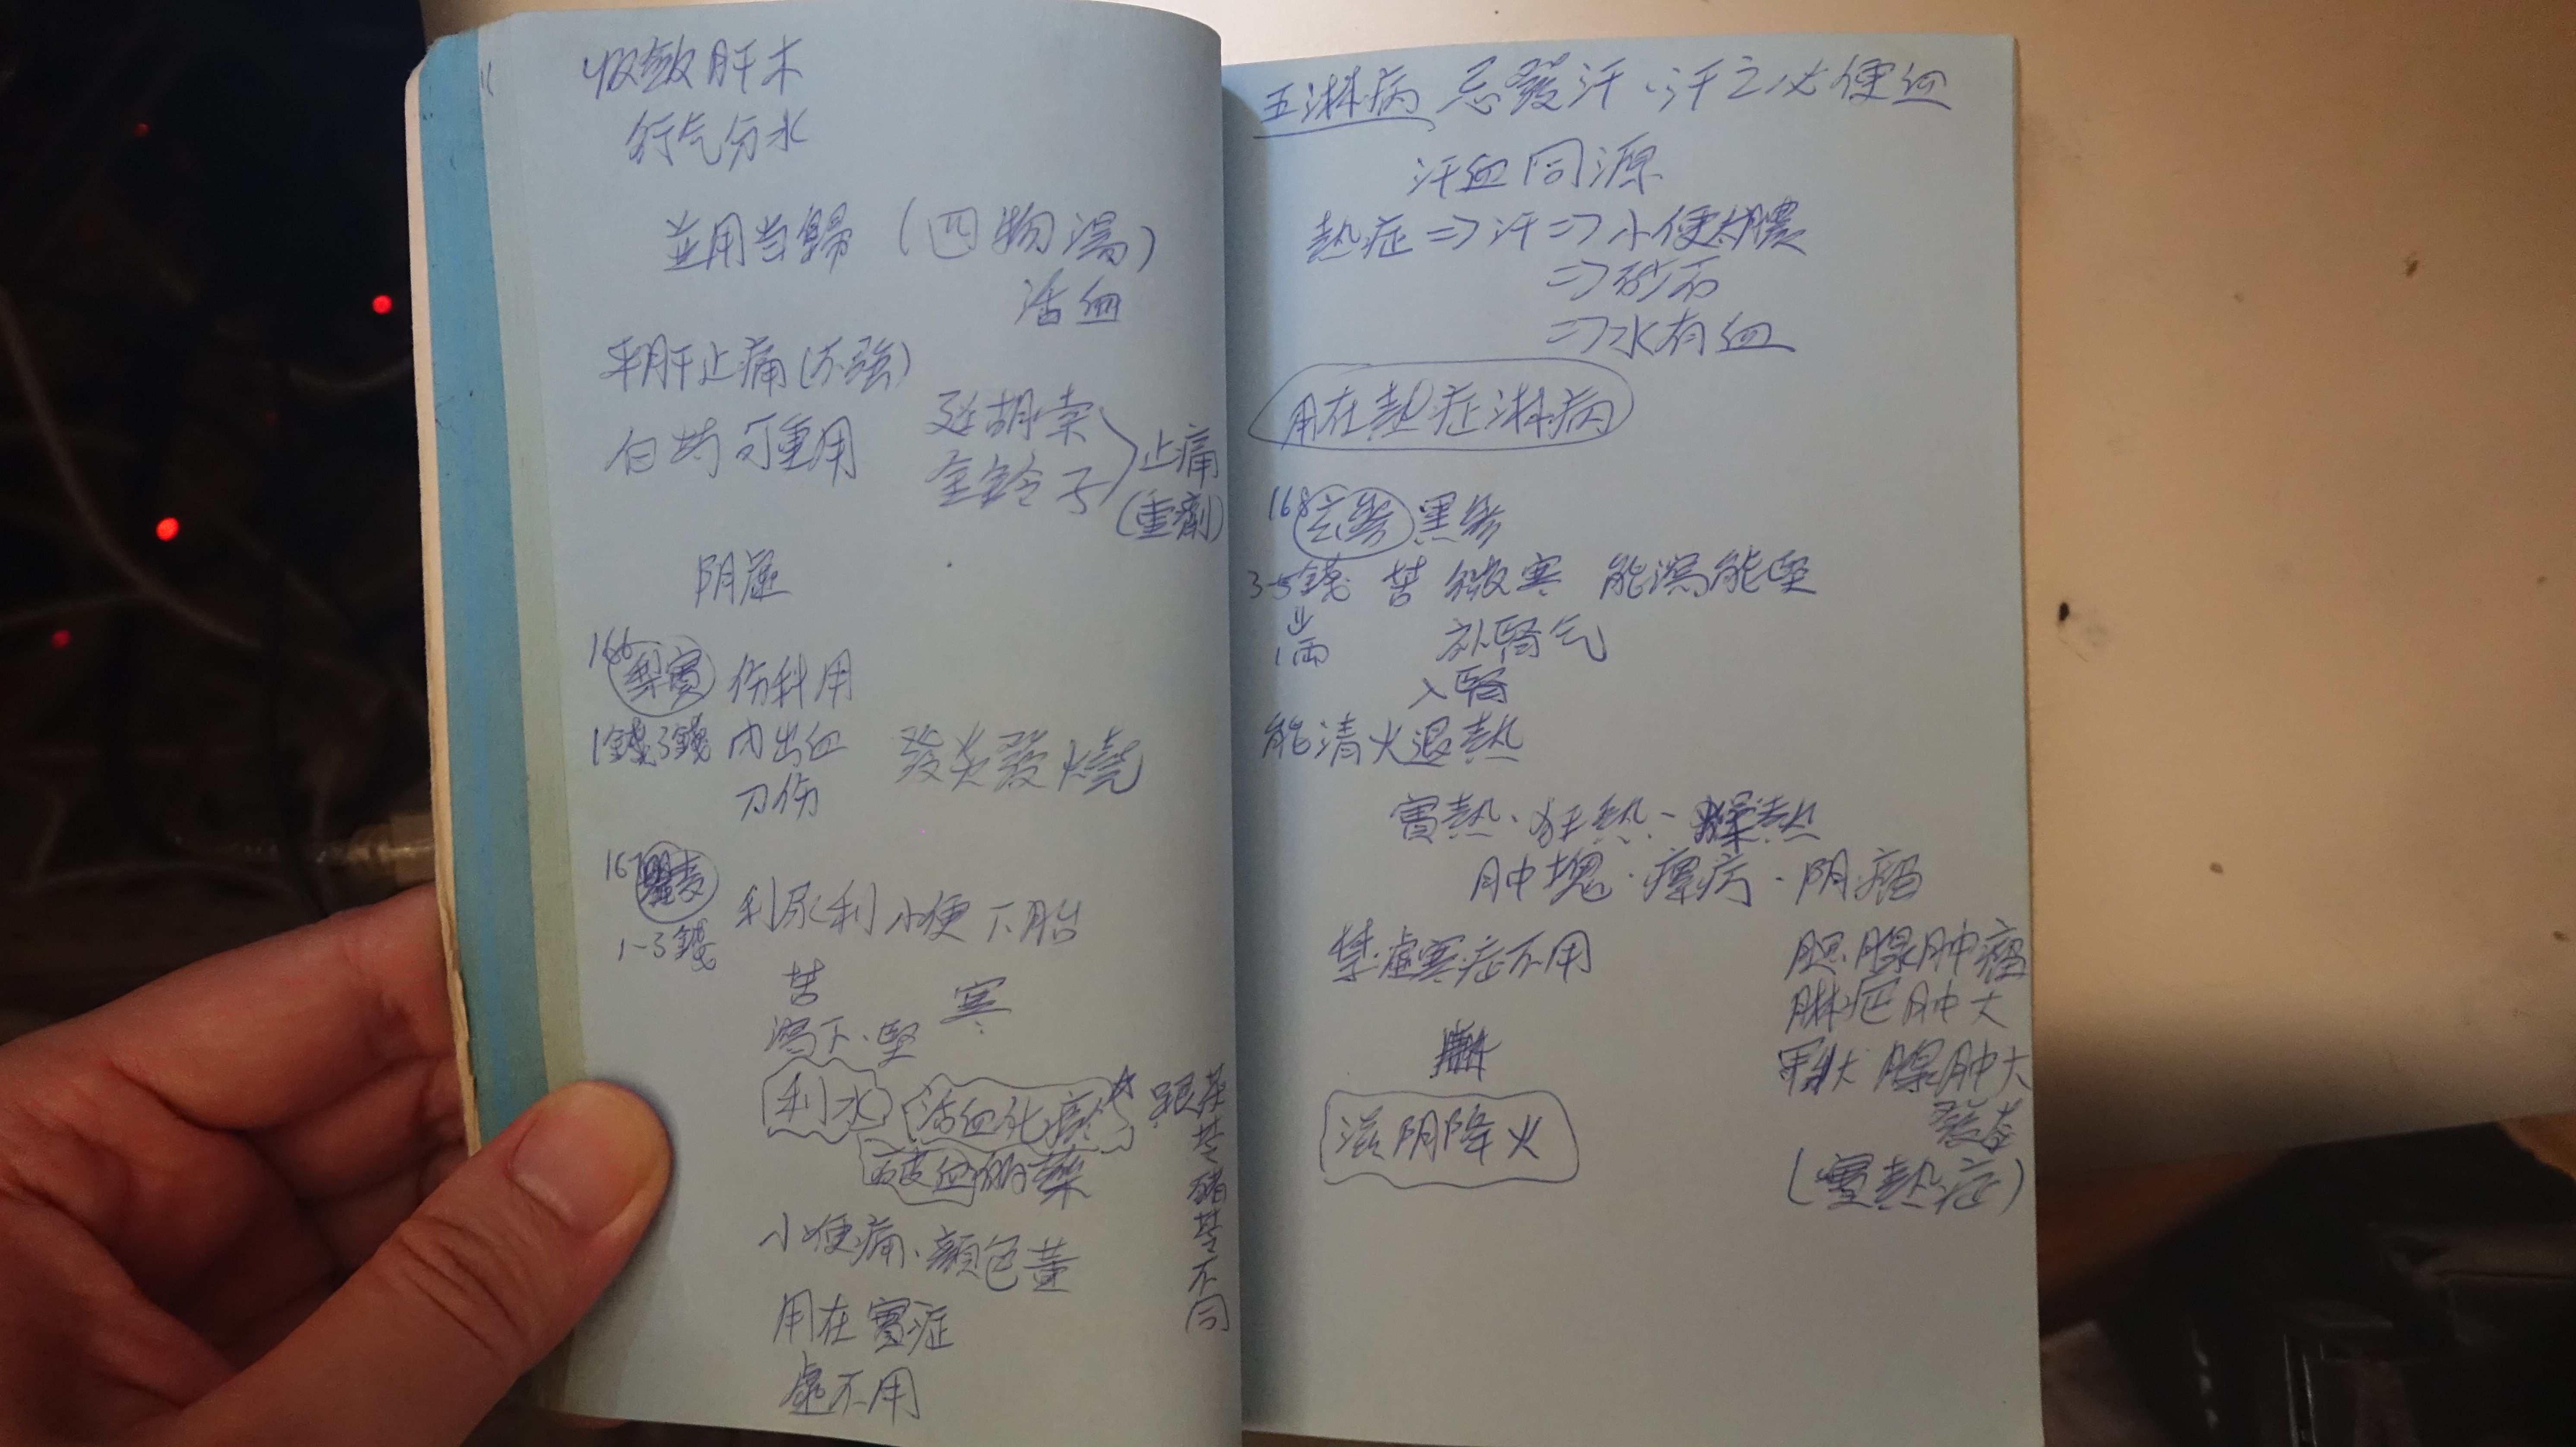 收斂肝木
行气分水
並用当歸 (四物湯)
活血
平肝止痛(不強)
白芍可重用
延胡索
金鈴子
止痛
(重劑)
阴虛
166 梨實 伤科用
1錢3錢 內出血
刀伤
發炎發燒
167 瞿麦
1-3錢
利尿利小便下胎
苦
寒
瀉下.堅
利水 活血化瘀
破血的藥
跟茯苓豬苓不同
小便痛、顏色黃
用在實症
虛不用
五淋病 忌發汗、汗之必便血
汗血同源
熱症⇒汗⇒小便太濃
⇒砂石
⇒水有血
用在熱症淋病
168 玄參 黑參
3-5錢 苦 微寒 能瀉能堅
1兩
补腎气
入腎
能清火退熱
實熱、狂熱、燥熱
肿塊、瘰疬、阴瘤
禁虛寒症不用
胆.腺肿瘤
淋疤肿大
甲狀腺肿大
發炎
(實熱症)
滋阴降火